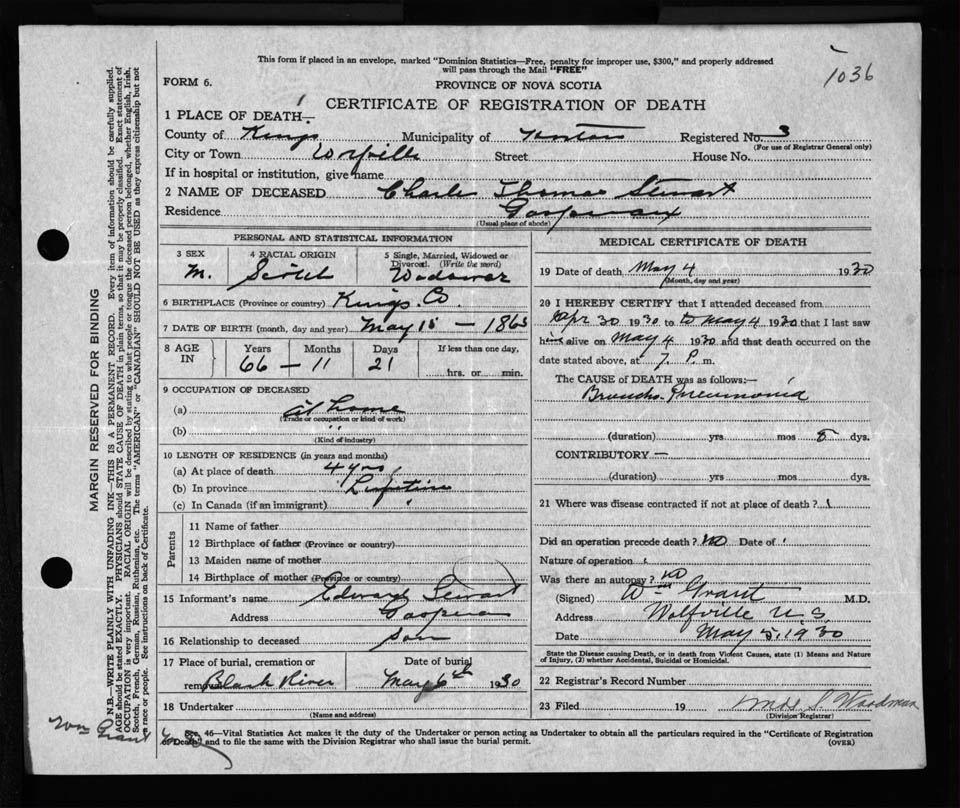 This form if placed in an envelope, marked "Dominion Statistics—Free, penalty for improper use, $300," and properly addressed
will pass through the Mail "FREE"
1036
FORM 6.
PROVINCE OF NOVA SCOTIA
CERTIFICATE OF REGISTRATION OF DEATH
1 PLACE OF DEATH—
County of Kings Municipality of Horton Registered No. 3
(For use of Registrar General only)
City or Town Wolfville Street House No.
If in hospital or institution, give name
2 NAME OF DECEASED Charles Thomas Stewart
Residence Gaspereaux
(Usual place of abode)
PERSONAL AND STATISTICAL INFORMATION
3 SEX
M.
4 RACIAL ORIGIN
Scotch
5 Single, Married, Widowed or
Divorced. (Write the word)
Widower
6 BIRTHPLACE (Province or country) Kings Co.
7 DATE OF BIRTH (month, day and year) May 15 – 1863
8 AGE
IN
Years Months Days If less than one day,
66 – 11 21
hrs. or min.
9 OCCUPATION OF DECEASED
(a) at home
(Trade or occupation or kind of work)
(b) "
(Kind of industry)
10 LENGTH OF RESIDENCE (in years and months)
(a) At place of death 4 yrs
(b) In province Lifetime
(c) In Canada (if an immigrant)
Parents
11 Name of father
12 Birthplace of father (Province or country)
13 Maiden name of mother
14 Birthplace of mother (Province or country)
15 Informant's name Edward Stewart
Address Gaspereau
16 Relationship to deceased son
17 Place of burial, cremation or
removal Black River
Date of burial
May 6th 1930
18 Undertaker
(Name and address)
MEDICAL CERTIFICATE OF DEATH
19 Date of death May 4 1930
(Month, day and year)
20 I HEREBY CERTIFY that I attended deceased from
Apr 30 1930 to May 4 1930 that I last saw
him alive on May 4 1930 and that death occurred on the
date stated above, at 7 P. m.
The CAUSE of DEATH was as follows:—
Broncho Pneumonia
(duration) yrs mos 8 dys.
CONTRIBUTORY —
(duration) yrs mos dys.
21 Where was disease contracted if not at place of death?
Did an operation precede death? No Date of
Nature of operation
Was there an autopsy? no
(Signed) Wm Grant M.D.
Address Wolfville N.S.
Date May 5, 1930
State the Disease causing Death, or in death from Violent Causes, state (1) Means and Nature
of Injury, (2) whether Accidental, Suicidal or Homicidal.
22 Registrar's Record Number
23 Filed 19 S. Woodman
(Division Registrar)
Sec. 46—Vital Statistics Act makes it the duty of the Undertaker or person acting as Undertaker to obtain all the particulars required in the "Certificate of Registration
of Death" and to file the same with the Division Registrar who shall issue the burial permit.
(OVER)
MARGIN RESERVED FOR BINDING
N.B.—WRITE PLAINLY WITH UNFADING INK—THIS IS A PERMANENT RECORD. Every item of information should be carefully supplied.
AGE should be stated EXACTLY. PHYSICIANS should STATE CAUSE OF DEATH in plain terms, so that it may be properly classified. Exact statement of
OCCUPATION is very important. RACIAL ORIGIN will be described by stating to what people or tongue the deceased person belonged, whether English, Irish,
Scotch, French, German, Russian, Ruthenian, etc. The terms "AMERICAN" or "CANADIAN" SHOULD NOT BE USED as they express citizenship but not
a race or people. See instructions on back of Certificate.
Wm Grant